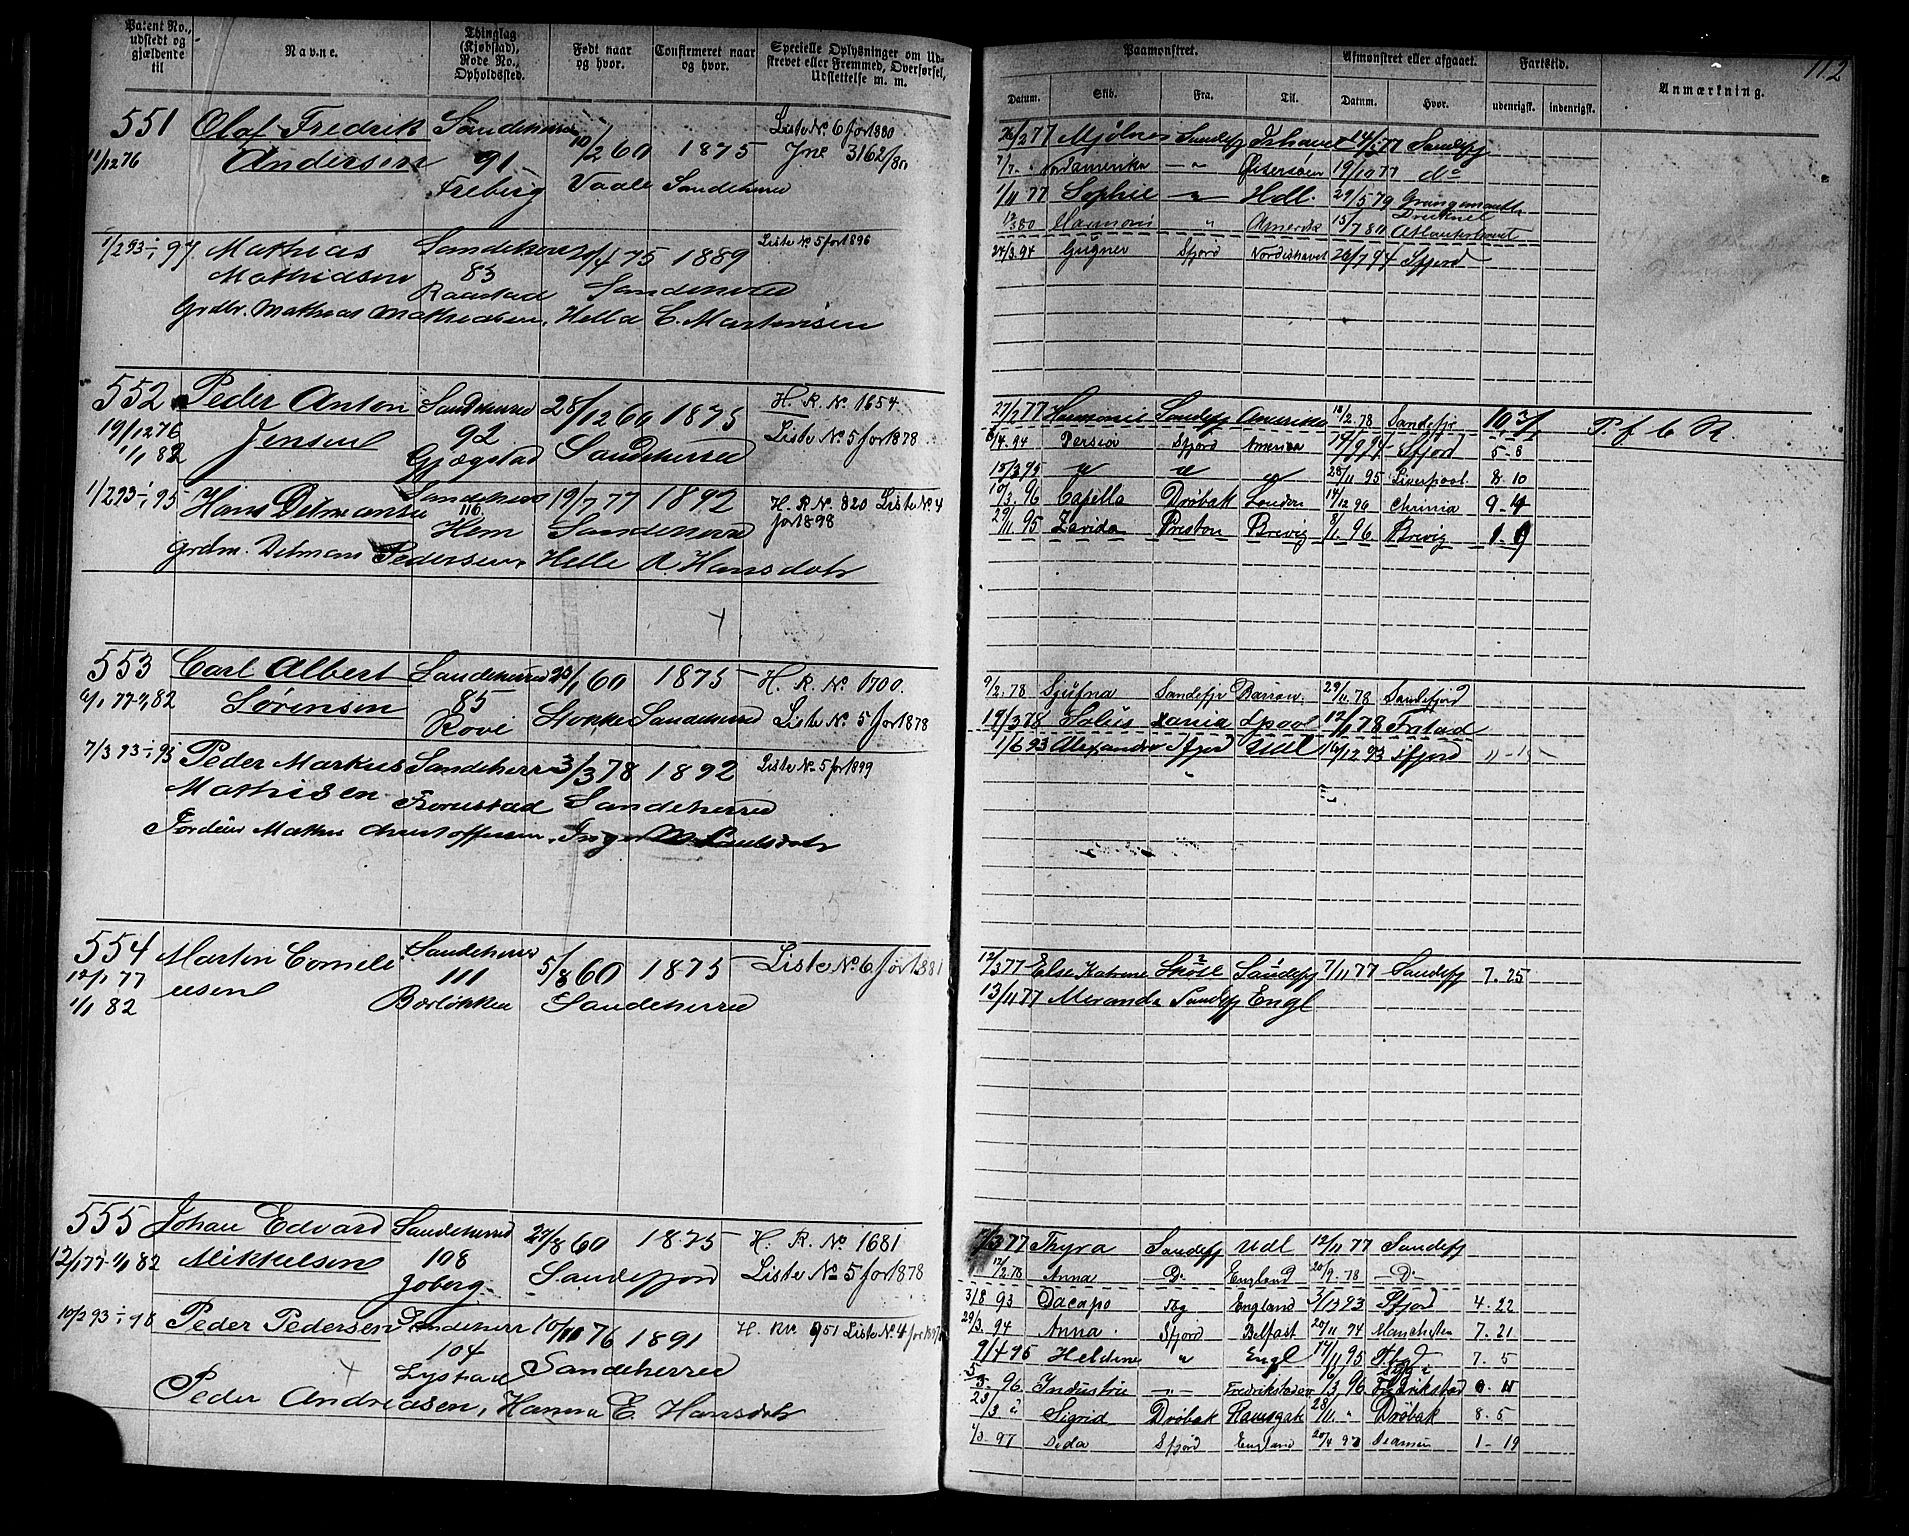 112
Patent No., udstedt og gjældende til
Navne.
Thinglag (Kjøbstad), Rode No., Opholdssted.
Født naar og hvor.
Confirmeret naar og hvor.
Specielle Oplysninger om Udstrevet eller Fremmed, Overførsel, Udslettelse m. m.
Paamønstret.
Afmønstret eller afgaaet.
Fartstid.
Anmærkning.
Datum. Skib. Fra. Til. Datum. Hvor. udenrigsk. indenrigsk.
551 Olaf Fredrik Sandeherred 10/2 60 1875 Liste No 6 for 1880
11/12 76 Andersen 91 Vaale Sandeherred Jnl 3162/80
Freberg
1/2 93 ÷ 97 Mathias Sandeherred 75 1889 Liste No 5 for 1896
Mathidsen 83 Sandeherred
Raastad
Grdbr. Mathias Mathiedsen, Hella C. Martinisen
26/2 77 Mjølner Sandefj Ishavet 77 Sandefj
7/7 - Nordamerika - " - Østersøen 19/10 77 do
1/11 77 Sophie - " - Hdl. 29/5 79 Grangemouth
12/3 80 Harmoni " Amerika 15/7 80 Druknet Atlanterhavet
24/3 94 Sfjord Nordishavet 26/7 94 Sfjord
552 Peder Anton Sandeherred 28/12 60 1875 H. R. No 1654
19/12 76 Jensen 92 Sandeherred Liste No 5 for 1878
1/1 82 Gjøgstad
1/2 93 ÷ 95 Hans Ditmansen Sandeherred 19/7 77 1892 H. R No 820 Liste No 4 for 1898
116 Hem Sandeherred
Grdm. Ditman Pedersen, Helle A. Hansdatr
27/2 77 Harmonie Sandefj Amerika 18/2 78 Sandefjr P. f. C. R.
94 Persia Sfjord America 94 Sfjord 5-8
15/3 95 " " " 28/11 95 Liverpool 8-10
10/3 96 Capella Drøbak London 14/12 96 Chrinia 9-4
29/11 95 Zavida Preston Brevig 8/1 96 Brevig 1-9
553 Carl Albert Sandeherred 60 1875 H. R. No 1700.
77 - 82 Sørensen 85 Stokke Sandeherred Liste No 5 for 1878
Rove
7/3 93 ÷ 95 Peder Markus Sandeherr 3/3 78 1892 Liste No 5 for 1899
Mathisen Sandeherred
Mathis Christoffersen, Inger M. Paulsdatr
9/2 78 Sandefjr Barrow 29/11 78 Sandefjord
19/3 78 Lpool 12/11 78
1/6 93 Alexandra Sfjord Udl 16/12 93 Sfjord
554 Martin Corneli Sandeherred 5/8 60 1875 Liste No 6 for 1881
12/1 77 usen 111 Sandeherred
1/1 82 Bærløkken
12/3 77 Else Katrine Sandefj 7/11 77 Sandefj 7. 25
13/11 77 Miranda Sandefj Engl
555 Johan Edvard Sandeherred 27/8 60 1875 H. R. No 1681
12/1 77 - 1/1 82 Mikkelsen 108 Sandefjord Liste No 5 for 1878
Joberg
10/2 93 ÷ 98 Peder Pedersen Sandeherr 10/11 76 1891 H. Rv. 951 Liste No 4 for
104 Sandeherred
Lystad
Peder Andreasen, Hanna E. Hansdatr
7/3 77 Thyra Sandefj Udl 12/11 77 Sandefj
17/2 78 Anna -Do- England 20/9 78 -Do-
3/8 93 Dacapo Tbg England 93 Sfjord 4. 22
29/3 94 Anna Sfjord Belfast 20/11 94 Manchesten 7. 21
9/4 95 Heldine " Engl 14/11 95 Tbg 7. 5
96 Industrie - " - Fredrikstad 96 Fredrikstad
23/3 " Sigrid Drøbak Ramsgate 28/11 " Drøbak 8. 5
97 Deda Sfjord England 20/4 97 1 - 19